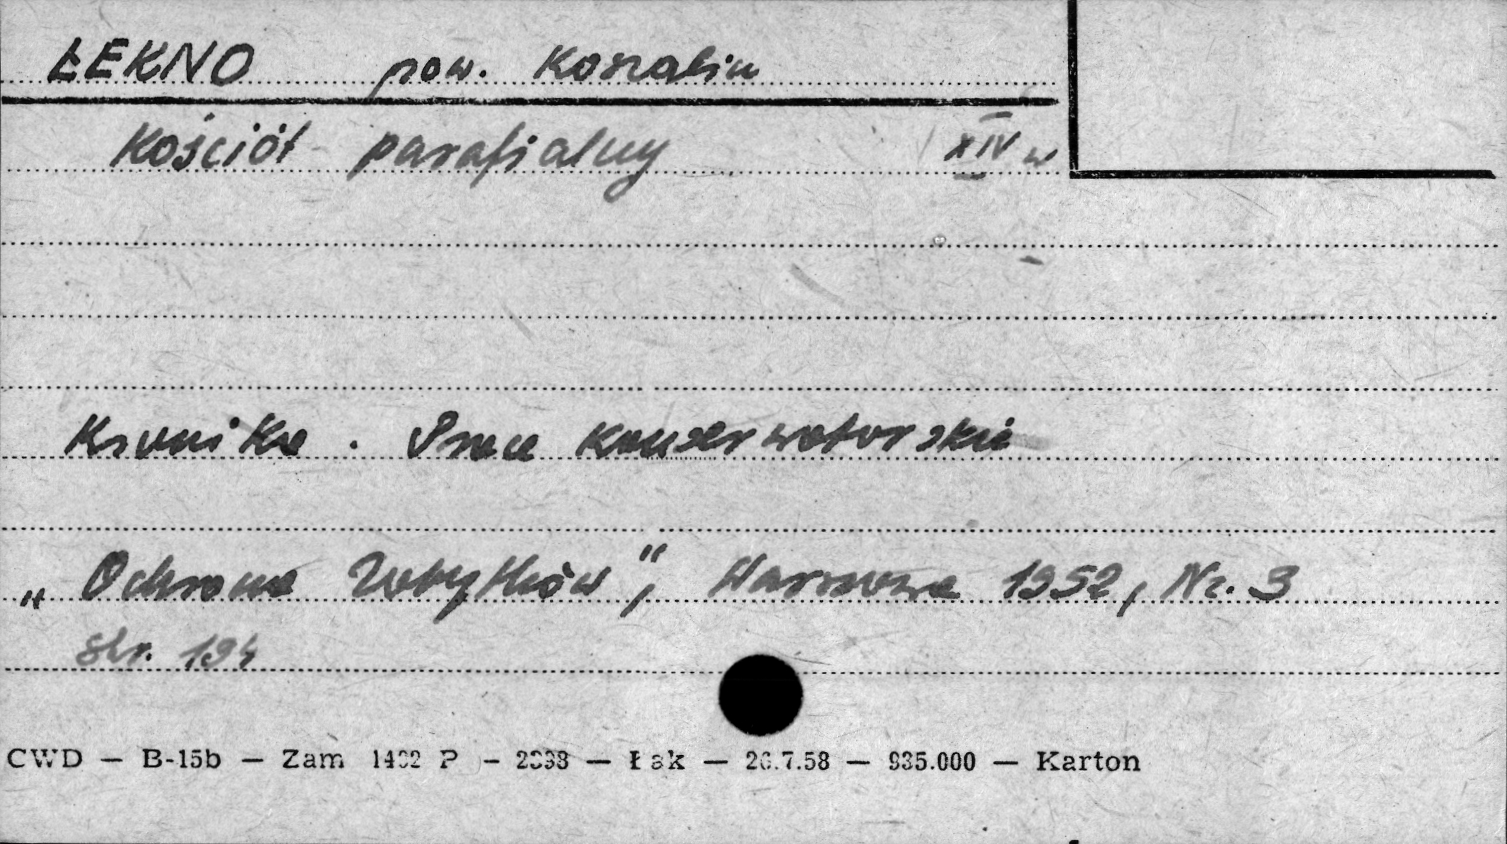 ŁEKNO pow. Koszalin
Kościół parafialny XIV w
Kronika. Prace konserwatorskie
„Ochrona Zabytków", Warszawa 1952, Nr. 3
str. 194
CWD — B-15b — Zam P — Łak — 26.7.58 — 935.000 — Karton